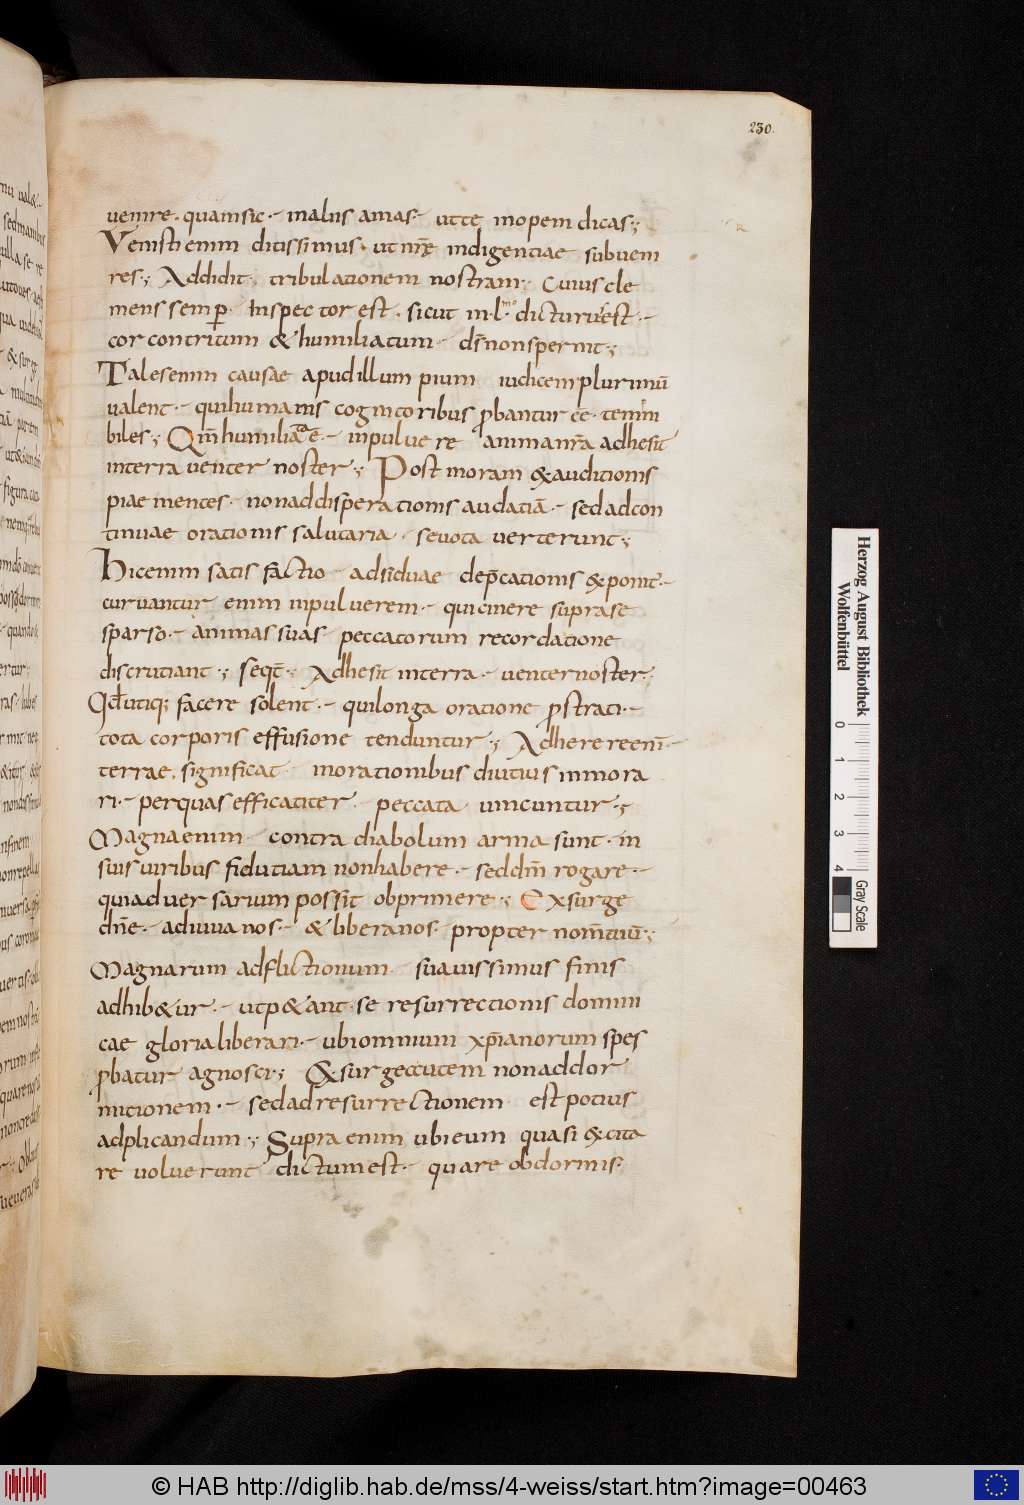 230.
uenire · quam sic · inaliis amas · ut te inopem dicas ·;
Venisti enim ditissimus · ut nr̄ę indigentiae subueni
res ·; Addidit · tribulationem nostram · Cuius cle
mens semp · Inspector est · sicut in · l · mo dicturus est ·
cor contritum & humiliatum · ds̄ non spernit ·;
Tales enim causae apud illum pium iudicem plurimū
ualent · qui humanis cognitoribus probantur eē · temni
biles ·; Qm̄ humiliata ē · in puluere anima nr̄a adhesit
in terra uenter noster ·; Post moram & auditionis
piae mentes · non ad disperationis audatiā · sed ad con
tinuae orationis salutaria · se uota uerterunt ·;
Hic enim satis factio · adsiduae dep̄cationis exponit̄ ·
curuantur enim in puluerem · qui cinere supra se
sparso · animas suas peccatorum recordatione
discrutiant ·; seqt̄ · Adhesit in terra · uenter noster ·
Qd utiq; facere solent · qui longa oratione prostrati ·
tota corporis effusione tenduntur ·; Adherere enī ·
terrae · significat · in orationibus diutius inmora
ri · per quas efficatiter · peccata uincuntur ·;
Magna enim · contra diabolum arma sunt · in
suis uiribus fidutiam non habere · sed dn̄m rogare ·
qui aduersarum possīt obprimere ·; Exsurge
dn̄e · adiuua nos · & libera nos · propter nom̄ tuū ·;
Magnarum adflictionum · suauissimus finis
adhib&ur · ut p&ant se resurrectionis domini
cae gloria liberari · ubi omnium xp̄ianorum spes
probatur agnosci ·; Exsurge autem non ad dor
mitionem · sed ad resurrectionem est potius
adplicandum ·; Supra enim ubi eum quasi excita
re uoluerunt dictum est · quare obdormis ·
Herzog August Bibliothek
Wolfenbüttel
0 1 2 3 4
Gray Scale
© HAB http://diglib.hab.de/mss/4-weiss/start.htm?image=00463